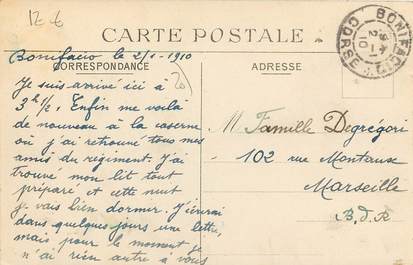 12 €
CARTE POSTALE
Bonifacio le 2/1-1910
CORRESPONDANCE
ADRESSE
20
BONIFACIO
2-1
10
CORSE
Je suis arrivé ici à
3h 1/2. Enfin me voilà
de nouveau à la caserne
où j'ai retrouvé tous mes
amis du régiment. J'ai
trouvé mon lit tout
préparé et cette nuit
je vais bien dormir. J'écrirai
dans quelques jours une lettre,
mais pour le moment je
n'ai rien autre à vous
M. Famille Degrégori
102 rue Montaux
Marseille
B.d.R